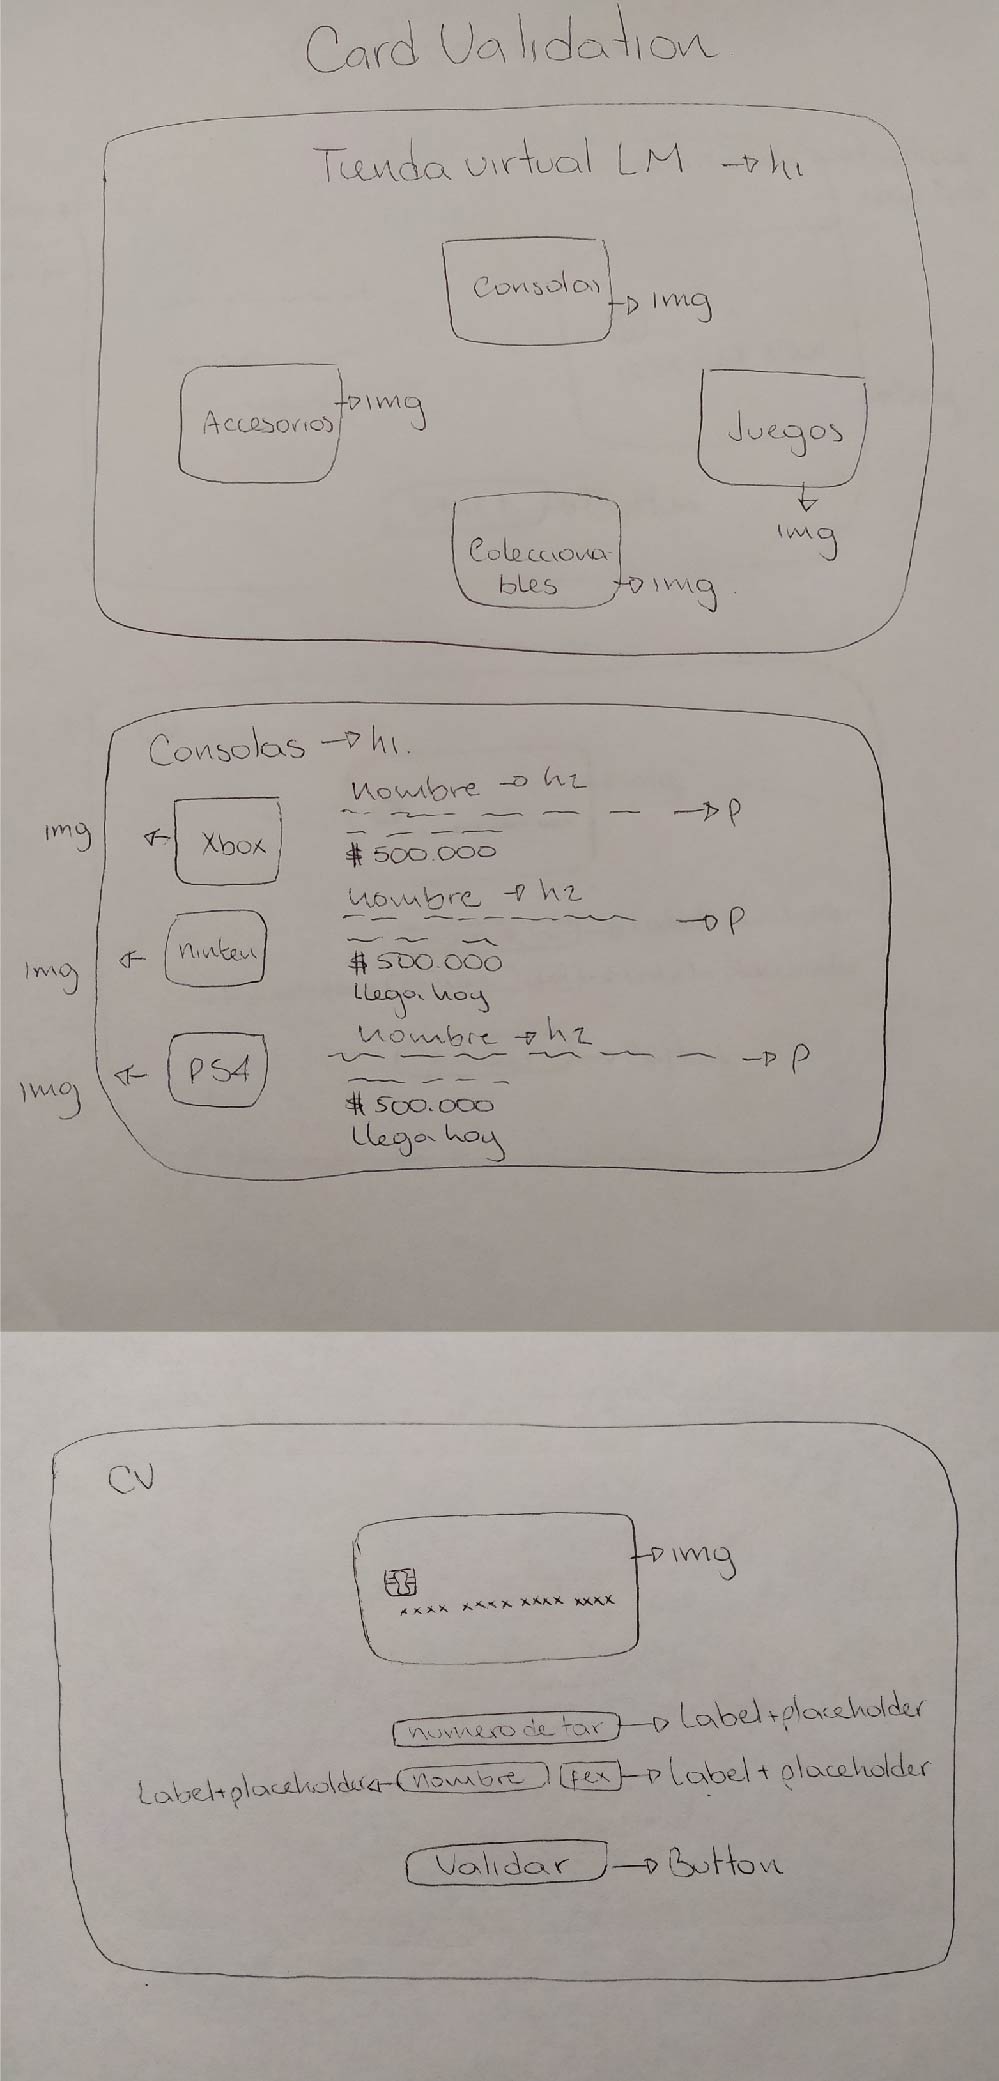 Card Validation
Tienda virtual LM → h1
Consolas → img
Accesorios → img
Juegos
img
Colecciona-
bles → img.
Consolas → h1.
nombre → h2
→ P
img ← Xbox
$ 500.000
nombre → h2
→ P
img ← ninten
$ 500.000
llega hoy
nombre → h2
→ P
img ← PS4
$ 500.000
llega hoy
CV
→ img
xxxx xxxx xxxx xxxx
numero de tar → Label+placeholder
Label+placeholder ← nombre fex → Label + placeholder
Validar → Button